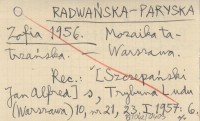 RADWAŃSKA-PARYSKA
Zofia 1956. Mozaika ta-
trzańska. Warszawa.
Rec.: "[Szczepański
Jan Alfred] s, Trybuna Ludu
(Warszawa) 10, nr 21, 23. I. 1957: 6.